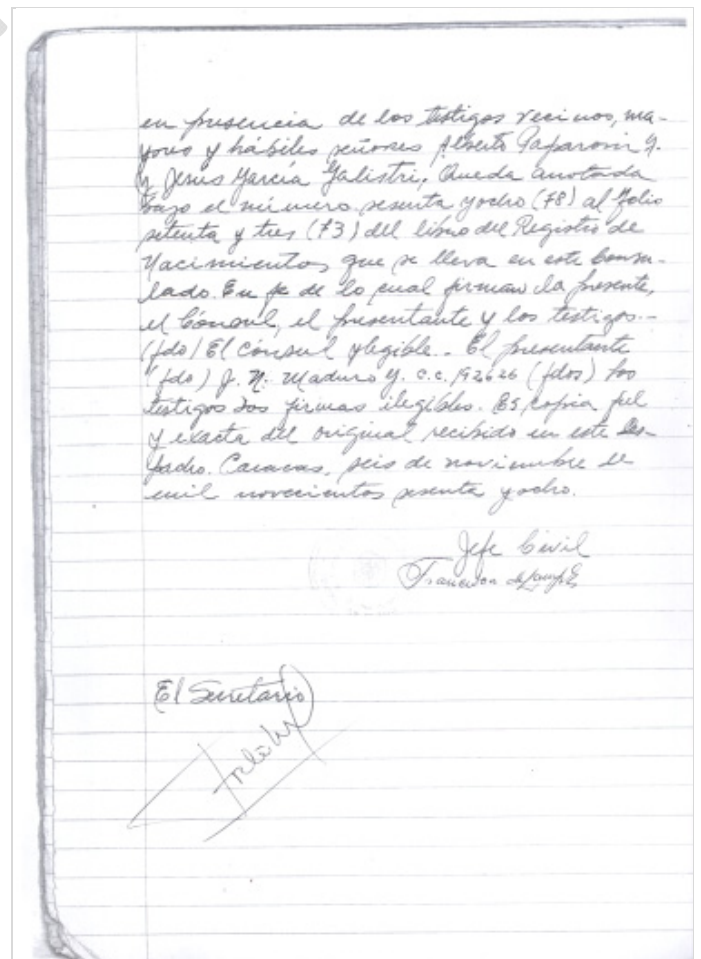 en presencia de los testigos vecinos, ma-
yores y hábiles señores Alberto
y Jesus Garcia Galistri, Queda anotada
bajo el número sesenta y ocho (78) al folio
setenta y tres (73) del libro del Registro de
Nacimientos que se lleva en este Consu-
lado. En fe de lo cual firman la presente,
el Cónsul, el presentante y los testigos.-
(fdo) El cónsul ylegible.- El presentante
(fdo) J. N. Maduro G. c.c. 192626 (fdos) los
testigos dos firmas ilegibles. Es copia fiel
y exacta del original recibido en este des-
pacho. Caracas, seis de noviembre de
mil novecientos sesenta y ocho.
Jefe Civil
El Secretario